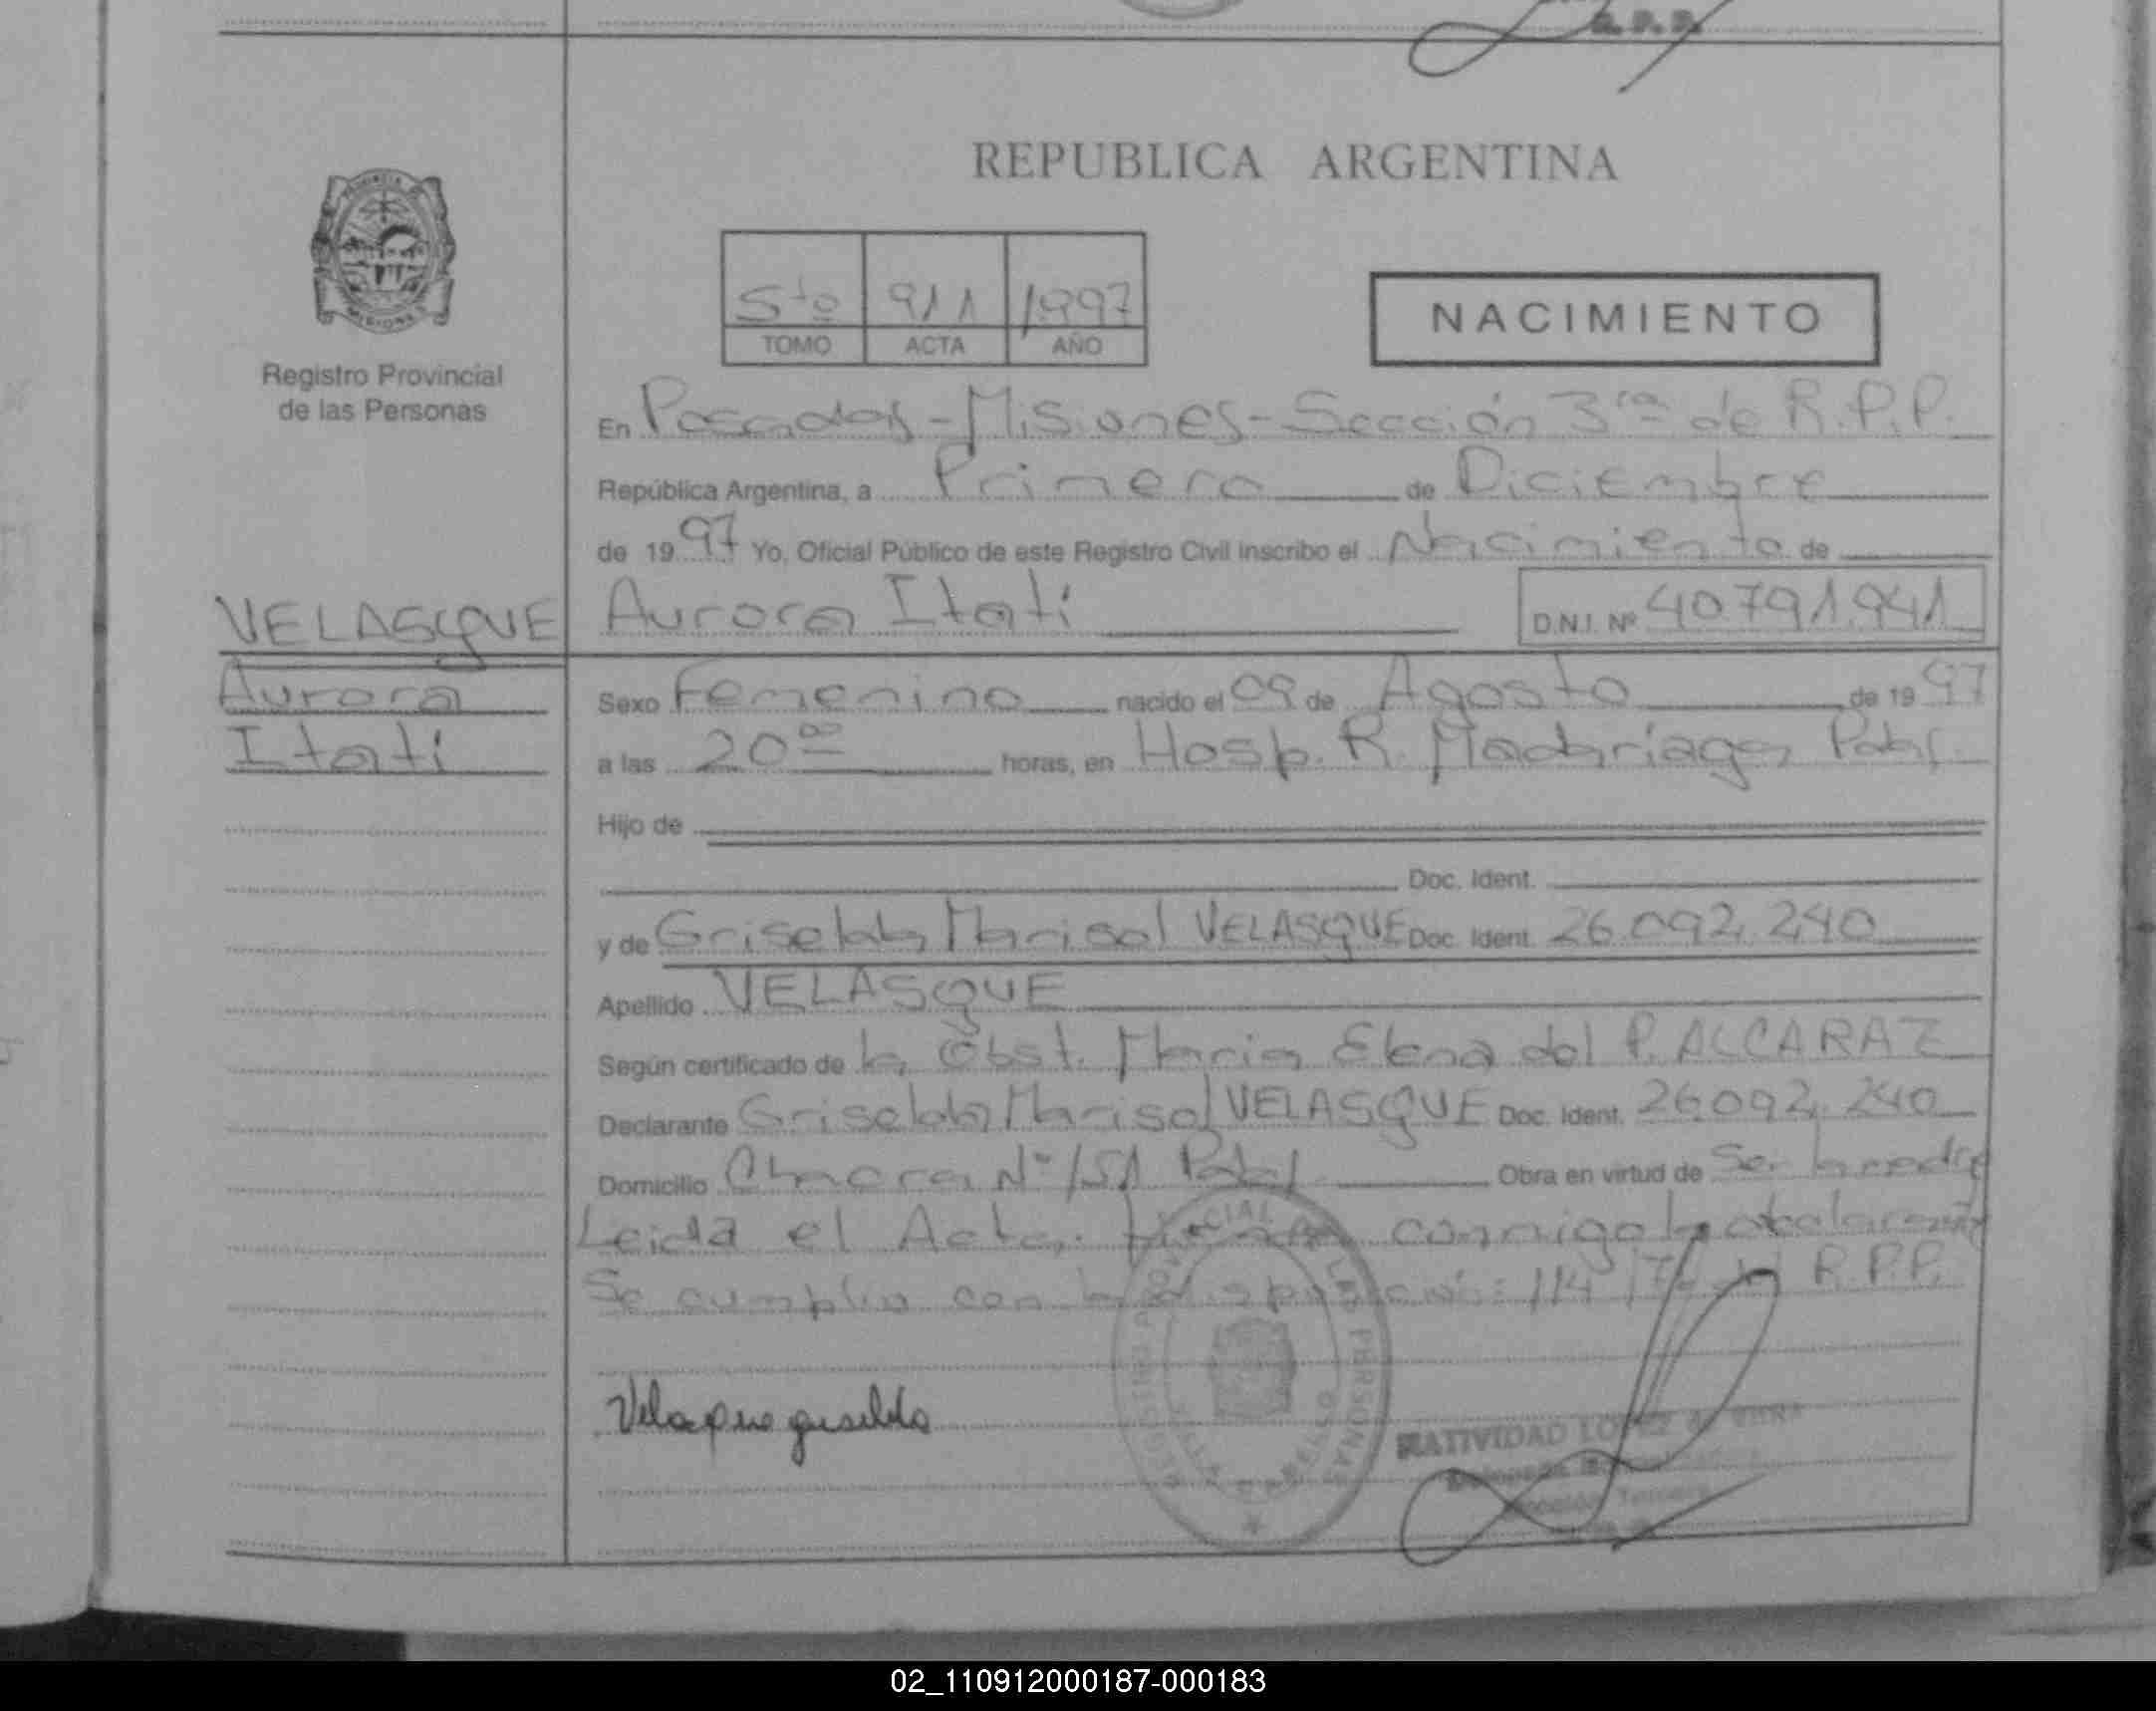 R.P.P.
REPUBLICA ARGENTINA
PROVINCIA
MISIONES
Registro Provincial
de las Personas
5to 911 1997
TOMO ACTA AÑO
NACIMIENTO
En Posadas - Misiones - Sección 3ra de R.P.P.
República Argentina, a Primero de Diciembre
de 1997 Yo, Oficial Público de este Registro Civil inscribo el Nacimiento de
VELASQUE Aurora Itati D.N.I. Nº 40.791.941
Aurora
Itati
Sexo Femenino nacido el 09 de Agosto de 1997
a las 20 00 horas, en Hosp. R. Madariaga
Hijo de
Doc. Ident.
y de Griselda Marisol VELASQUE Doc. Ident. 26.092.240
Apellido VELASQUE
Según certificado de la Obst. Maria Elena del P. ALCARAZ
Declarante Griselda Marisol VELASQUE Doc. Ident. 26.092.240
Domicilio Chacra Nº 151 Obra en virtud de Ser la madre
Leida el Acta, conmigo la declarante
Se cumplio con la disposición: 114 R.P.P.
REGISTRO PROVINCIAL DE LAS PERSONAS
Velasque griselda
NATIVIDAD LOPEZ de
02_110912000187-000183